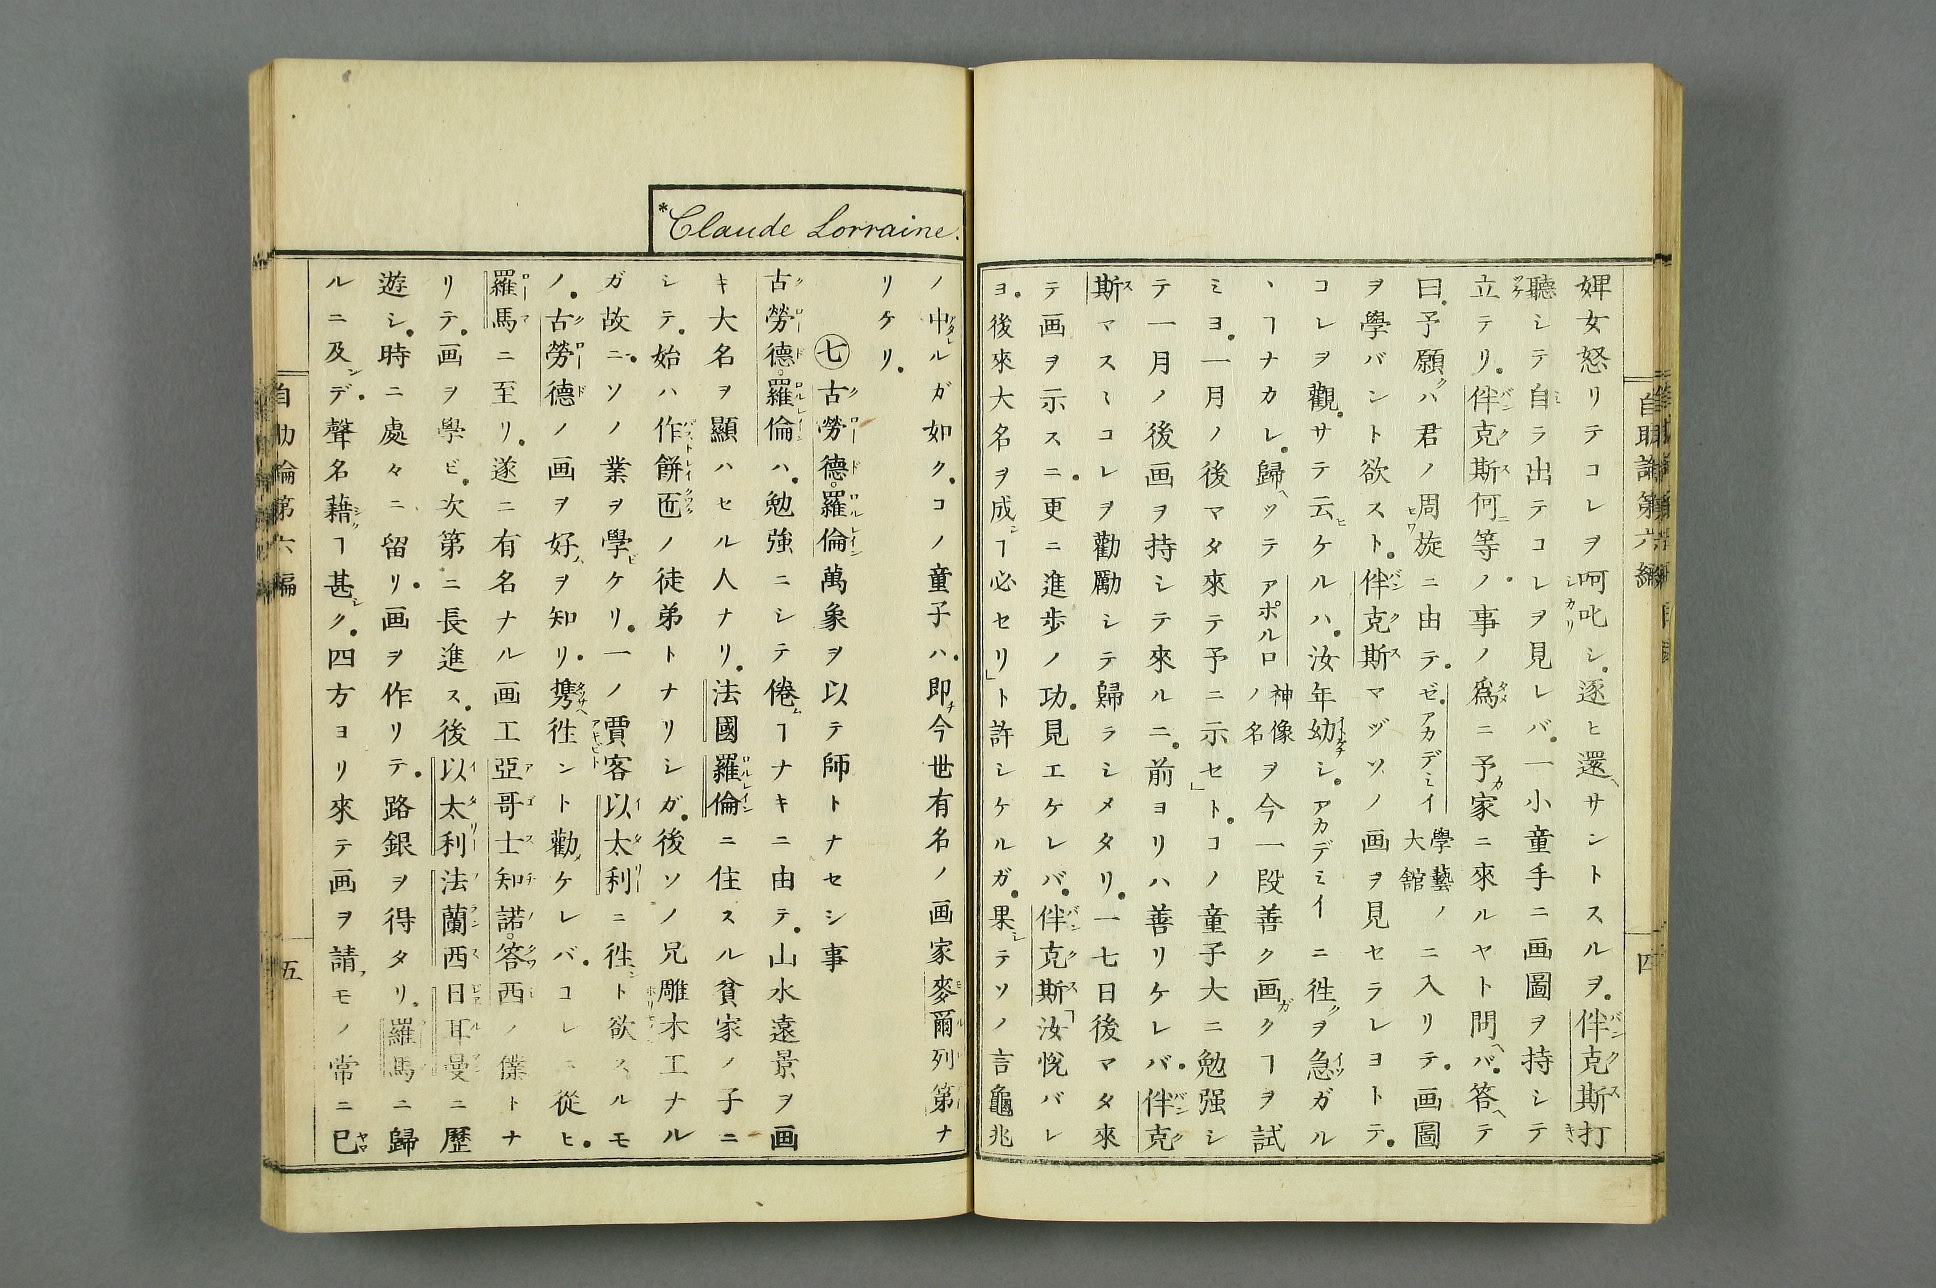 婢女怒リテコレヲ呵叱シ逐ヒ還サントスルヲ伴克斯打
聽シテ自ラ出テコレヲ見レバ一小童手ニ画圖ヲ持シテ
立テリ伴克斯何等ノ事ノ爲ニ予家ニ來ルヤト問バ答テ
曰予願ハ君ノ周旋ニ由テゼアカデミイ學藝大館ノニ入リテ画圖
ヲ學バント欲スト伴克斯マヅソノ画ヲ見セラレヨトテ
コレヲ觀サテ云ケルハ汝年幼シアカデミイニ徃ヲ急ガル
ヽヿナカレ歸ツテアポルロ神像ノ名ヲ今一段善ク画クヿヲ試
ミヨ一月ノ後マタ來テ予ニ示セ」トコノ童子大ニ勉强シ
テ一月ノ後画ヲ持シテ來ルニ前ヨリハ善リケレバ伴克
斯マスミコレヲ勸勵シテ歸ラシメタリ一七日後マタ來
テ画ヲ示スニ更ニ進歩ノ功見エケレバ伴克斯「汝悅バレ
ヨ後來大名ヲ成ヿ必セリ」ト許シケルガ果テソノ言龜兆
自助論第六編
四
*Claude Lorraine.
ノ中ルガ如クコノ童子ハ即今世有名ノ画家麥爾列第ナ
リケリ
七 古勞德羅倫萬象ヲ以テ師トナセシ事
古勞德羅倫ハ勉強ニシテ倦ヿナキニ由テ山水遠景ヲ画
キ大名ヲ顯ハセル人ナリ法國羅倫ニ住スル貧家ノ子ニ
シテ始ハ作餅匠ノ徒弟トナリシガ後ソノ兄雕木工ナル
ガ故ニソノ業ヲ學ケリ一ノ賈客以太利ニ徃ト欲スルモ
ノ古勞德ノ画ヲ好ヲ知リ携徃ント勸ケレバコレニ從ヒ
羅馬ニ至リ遂ニ有名ナル画工亞哥士知諾答西ノ僕トナ
リテ画ヲ學ビ次第ニ長進ス後以太利法蘭西日耳曼ニ歷
遊シ時ニ處々ニ留リ画ヲ作リテ路銀ヲ得タリ羅馬ニ歸
ルニ及デ聲名藉ヿ甚ク四方ヨリ來テ画ヲ請モノ常ニ已
自助論第六編
五